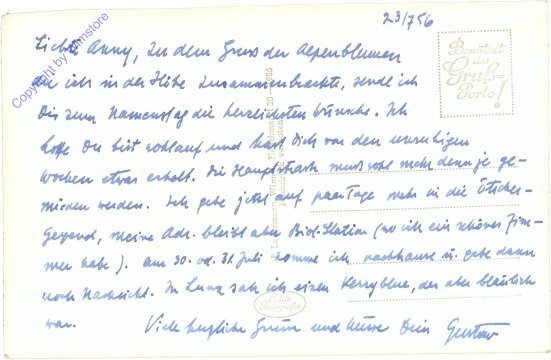 23/7 56
Liebste Anny, Zu dem Gruss der Alpenblumen
die ich in der Höhe zusammenbrachte, sende ich
Dir zum Namenstag die herzlichsten Wünsche. Ich
hoffe Du bist wohlauf und hast Dich von den unruhigen
Wochen etwas erholt. Die Hauptstrasse muss wohl mehr denn je ge-
mieden werden. Ich gehe jetzt auf paar Tage mehr in die Ötscher-
gegend, meine Adr. bleibt aber Biol. Station (wo ich ein schönes Zim-
mer habe). Am 30. od. 31. Juli komme ich nachhause u. gebe dann
noch Nachricht. In Lunz sah ich einen der aber bläulich
war. Viele herzliche Grüsse und Küsse Dein Gustav
Benützet
das
Gruß-
Porto!
Echte
Fotografie
Copyright by filmstore